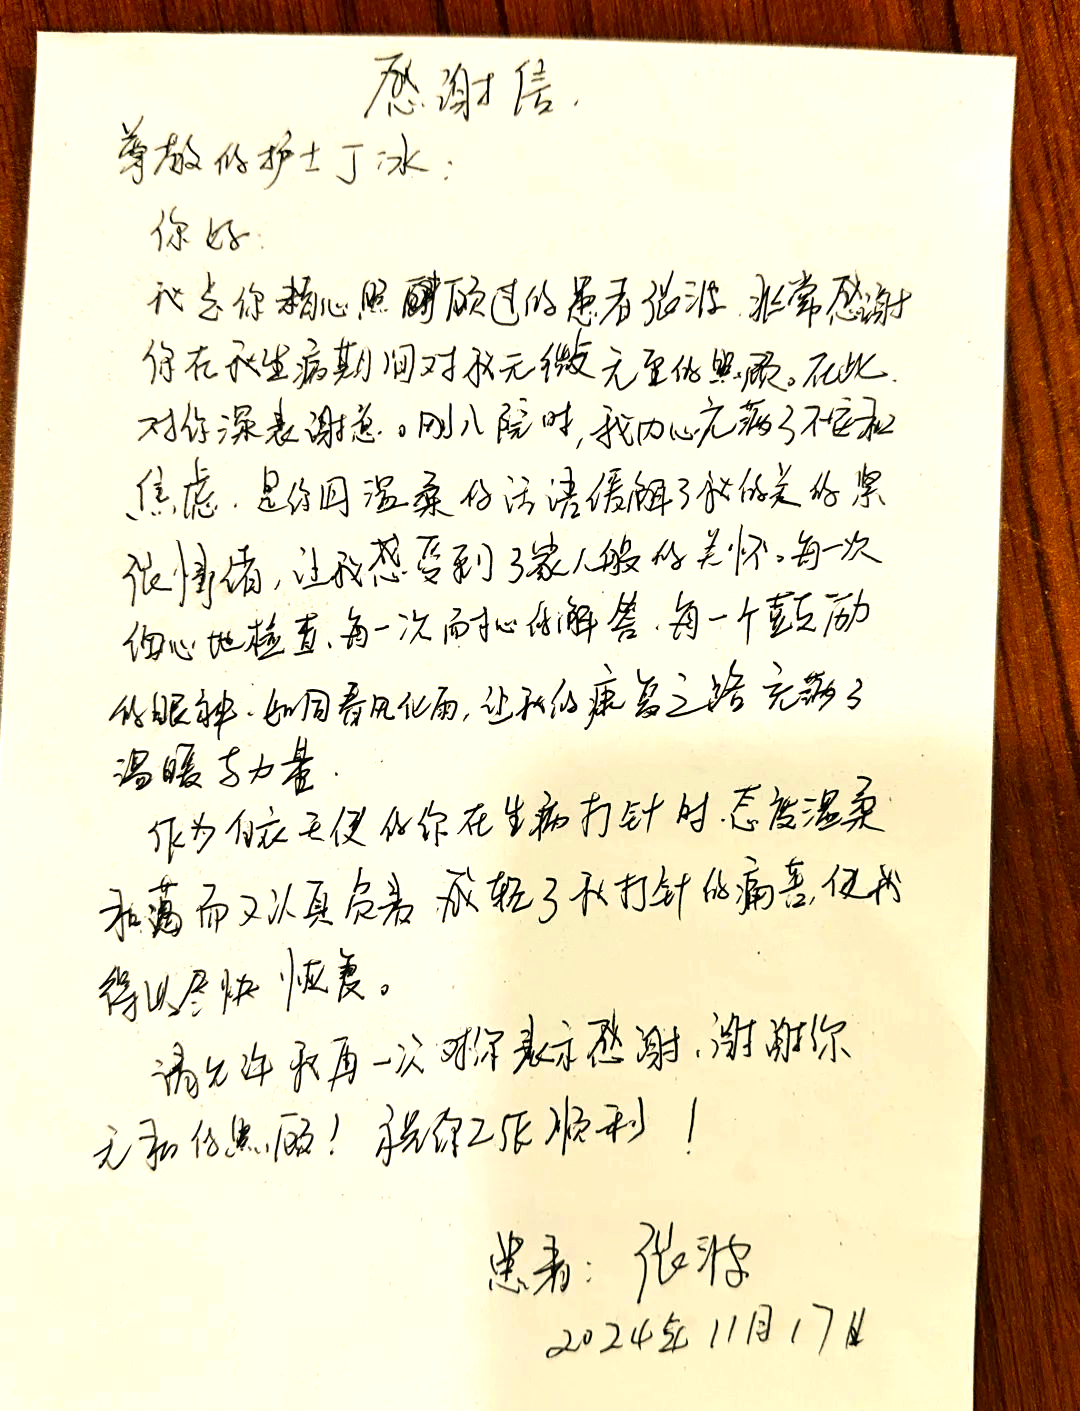 感谢信.
尊敬的护士丁冰:
你好:
我是你精心照顾过的患者张波.非常感谢
你在我生病期间对我无微无至的照顾。在此.
对你深表谢意。刚入院时,我内心充满了不安和
焦虑.是你用温柔的话语缓解了我的美的紧
张情绪,让我感受到了家人般的关怀。每一次
细心地检查、每一次耐心的解答.每一个鼓励
的眼神.如同春风化雨,让我的康复之路充满了
温暖与力量.
作为白衣天使的你在生病打针时.态度温柔
和蔼而又认真负责 减轻了我打针的痛苦,使我
得以尽快恢复。
请允许我再一次对你表示感谢.谢谢你
无私的照顾!祝你工作顺利!
患者:张波
2024年11月17日